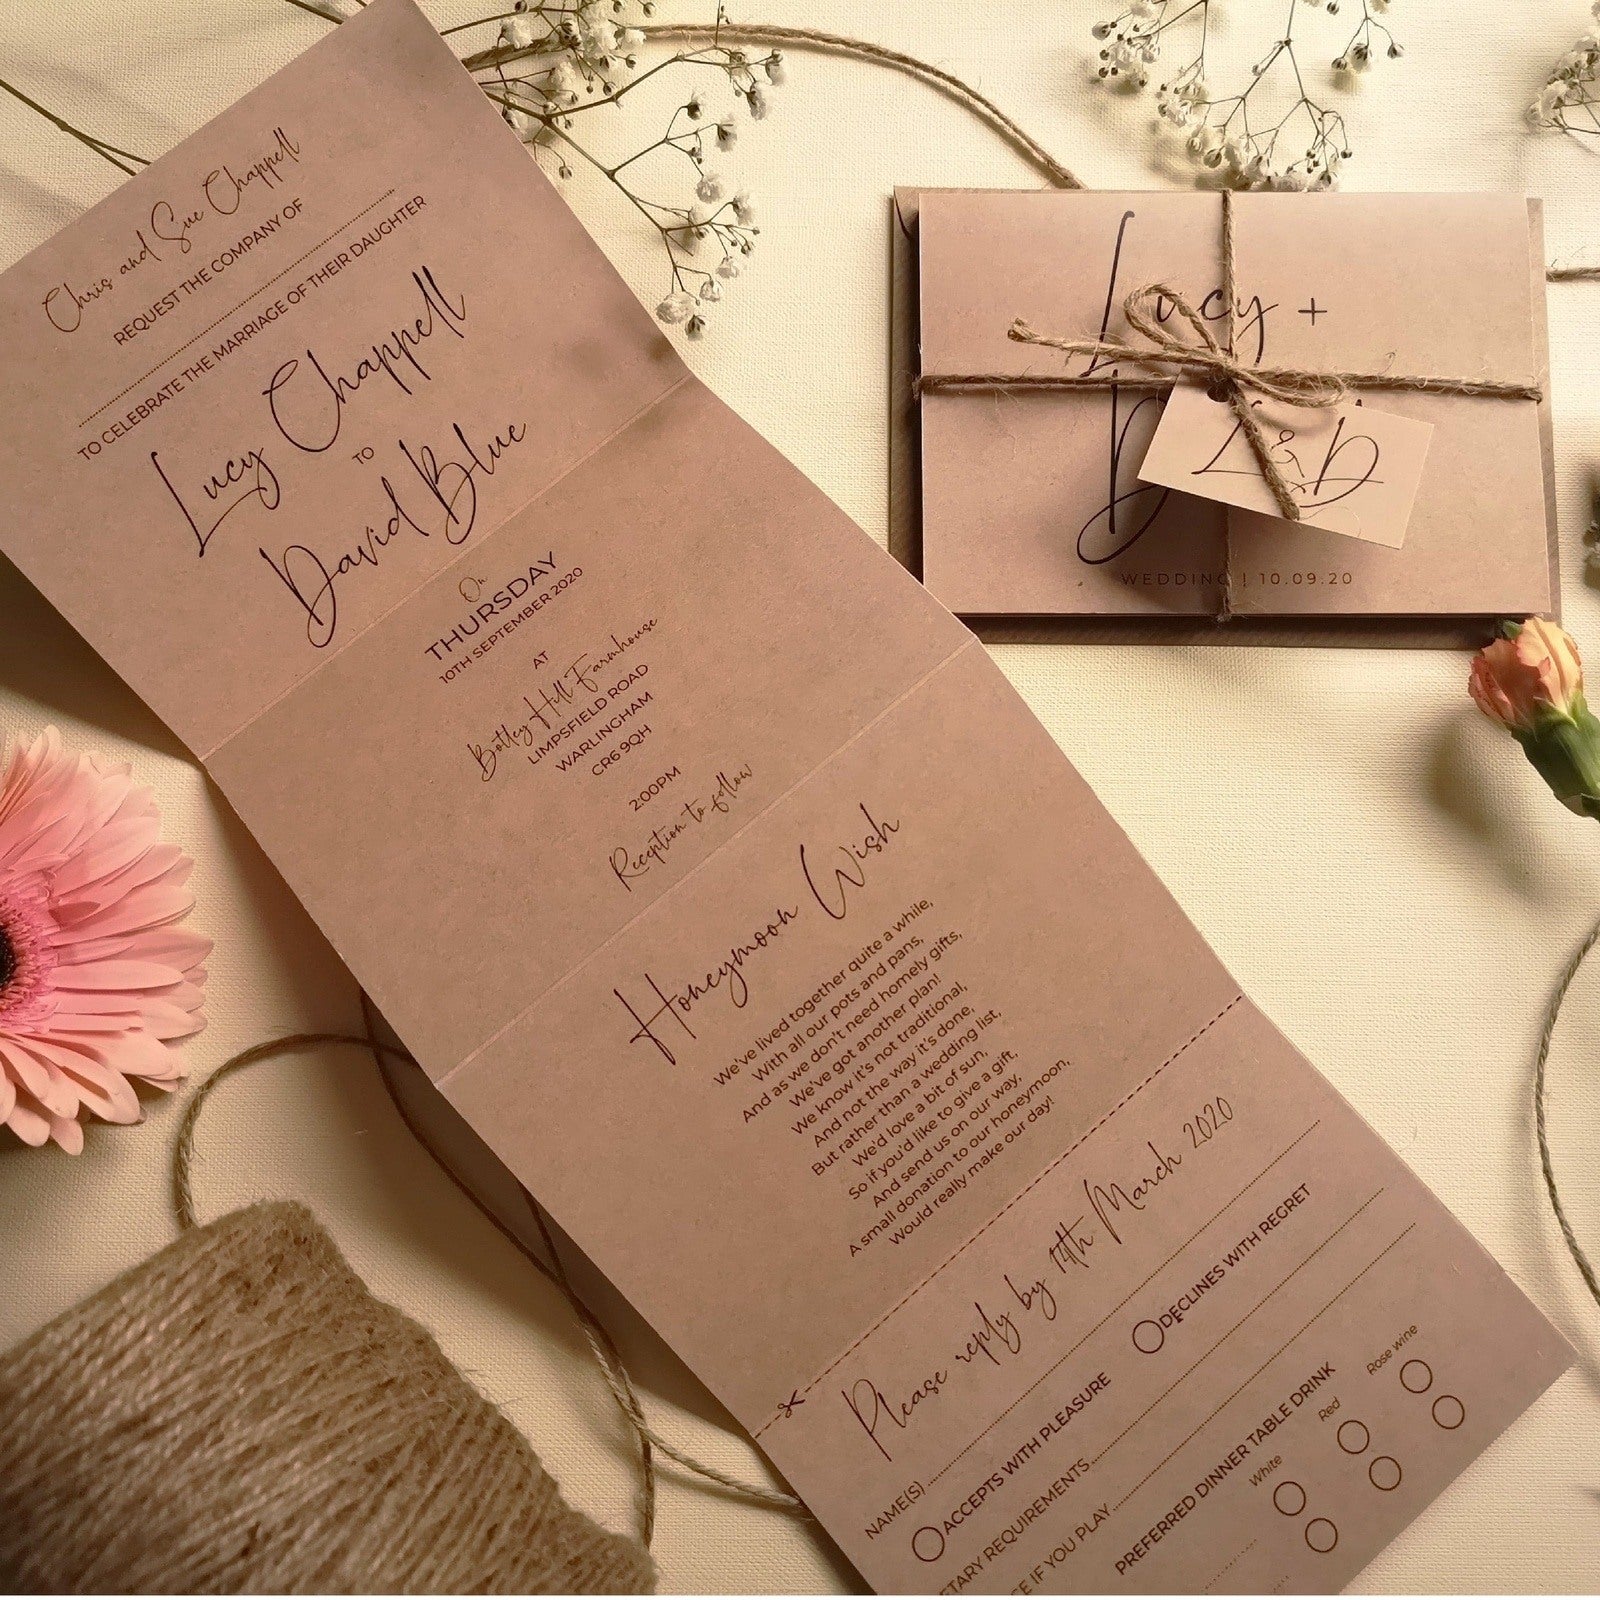 Chris and Sue Chappell
REQUEST THE COMPANY OF
TO CELEBRATE THE MARRIAGE OF THEIR DAUGHTER
Lucy Chappell
TO
David Blue
On
THURSDAY
10TH SEPTEMBER 2020
AT
Botley Hill Farmhouse
LIMPSFIELD ROAD
WARLINGHAM
CR6 9QH
2:00PM
Reception to follow
Honeymoon Wish
We've lived together quite a while,
With all our pots and pans,
And as we don't need homely gifts,
We've got another plan!
We know it's not traditional,
And not the way it's done,
But rather than a wedding list,
We'd love a bit of sun,
So if you'd like to give a gift,
And send us on our way,
A small donation to our honeymoon,
Would really make our day!
Please reply by 14th March 2020
NAME(S)
ACCEPTS WITH PLEASURE
DECLINES WITH REGRET
ETARY REQUIREMENTS
E IF YOU PLAY
PREFERRED DINNER TABLE DRINK
White Red Rose wine
Lucy +
D
L&D
WEDDING | 10.09.20